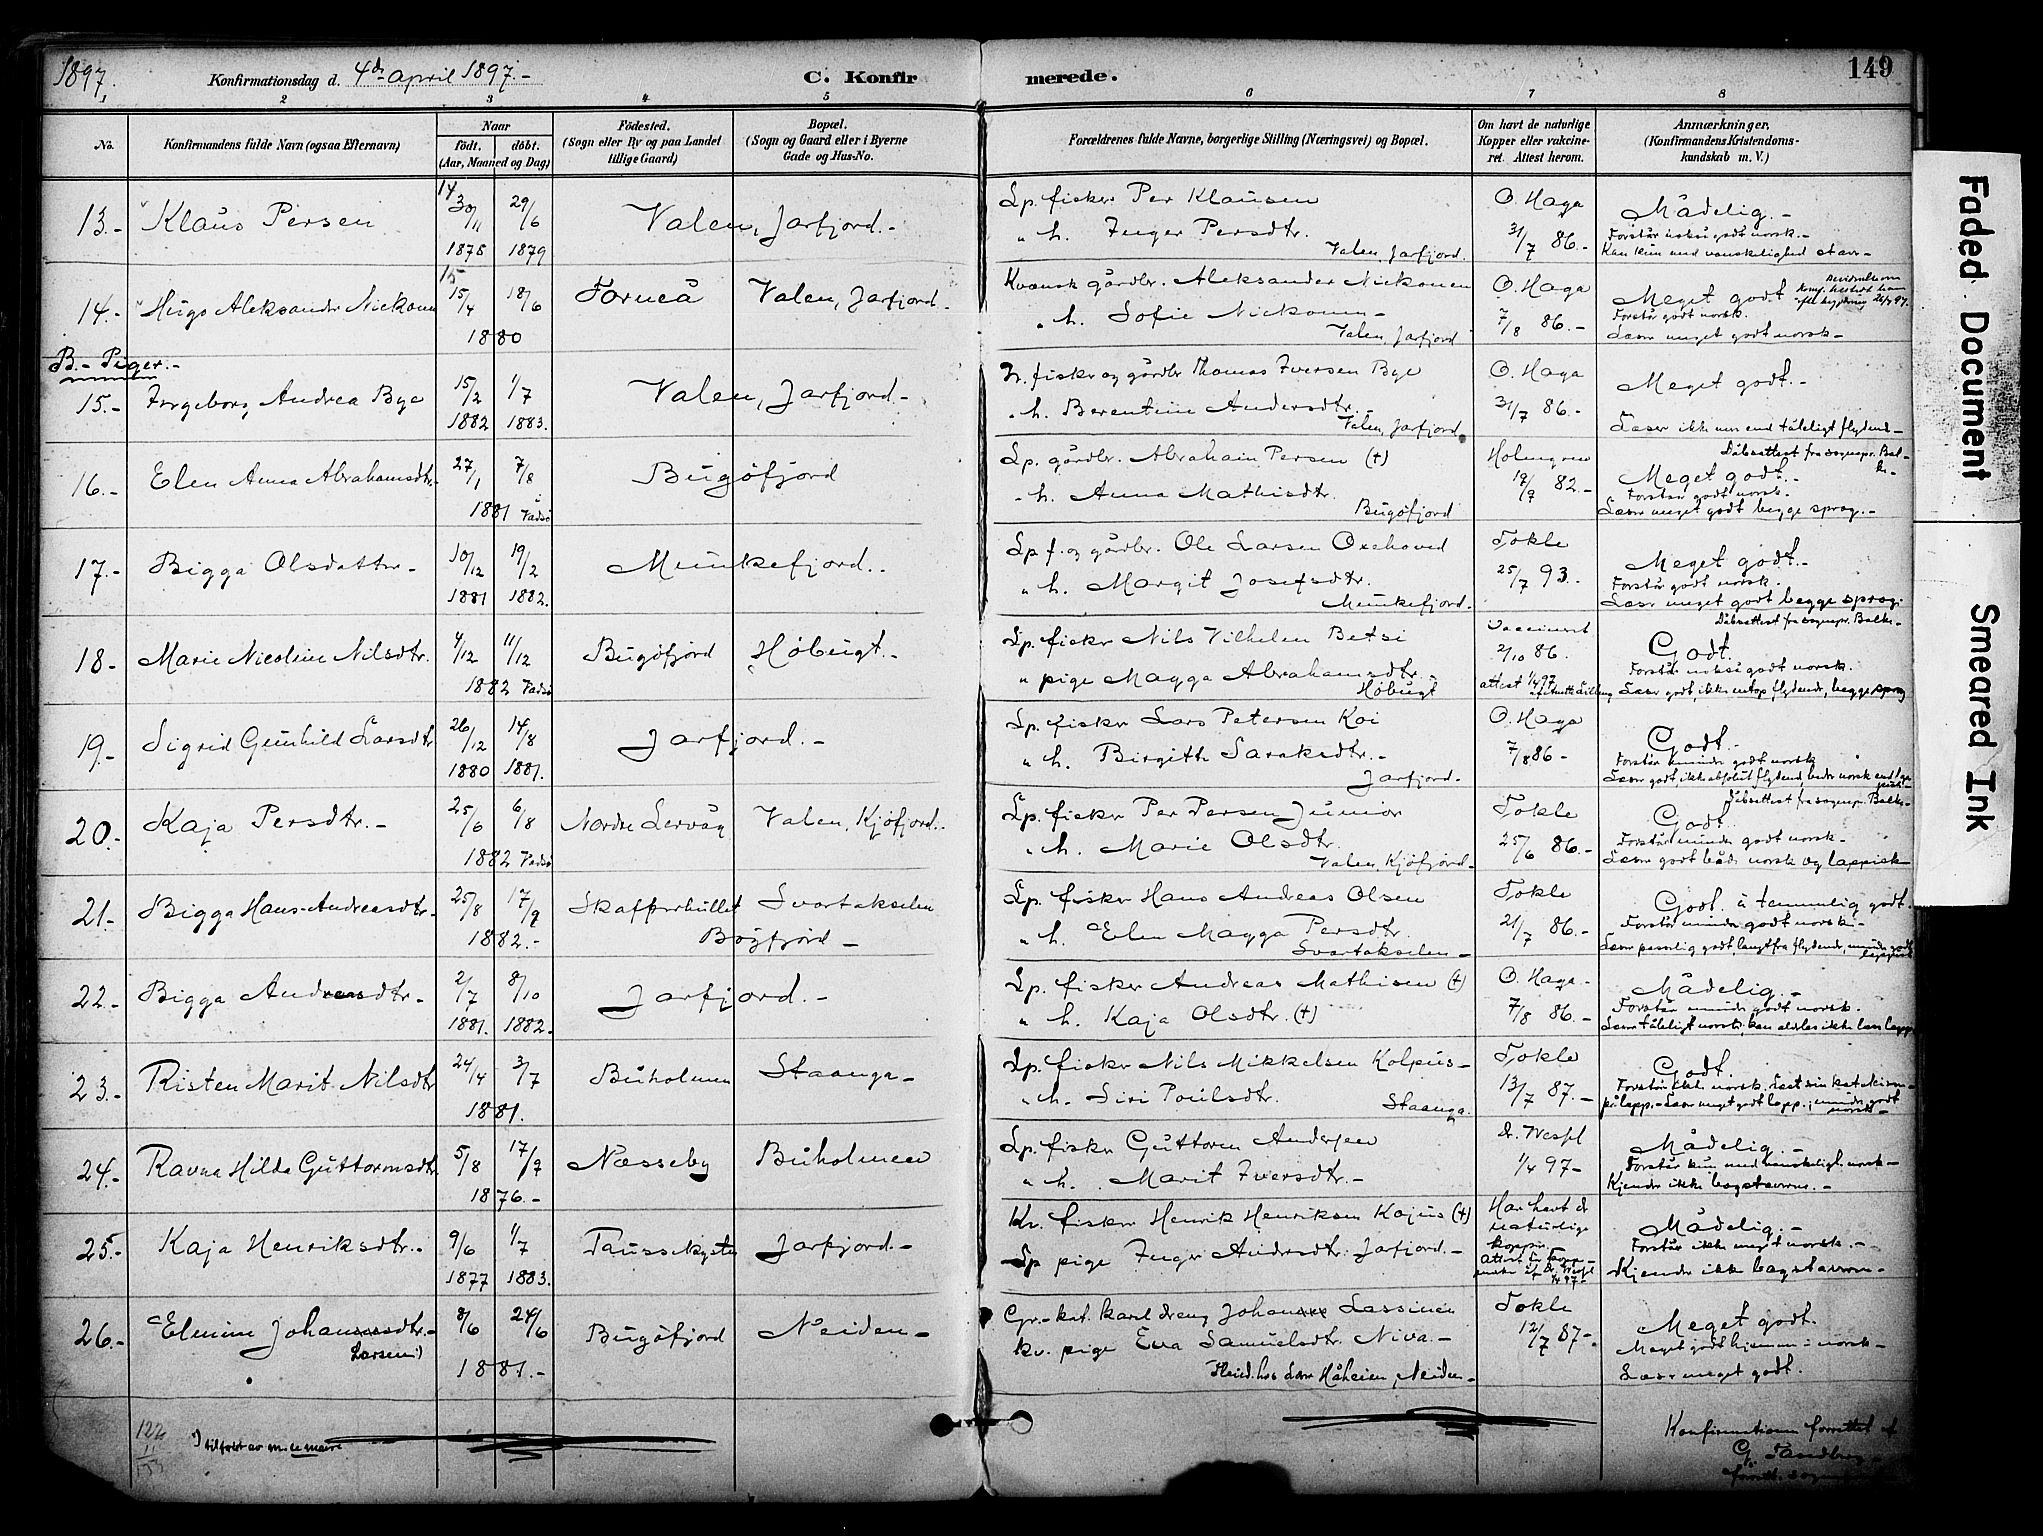 1897.
Konfirmationsdag d. 4de april 1897.-
C. Konfirmerede.
149
1 2 3 4 5 6 7 8
No.
Konfirmandens fulde Navn (ogsaa Efternavn)
Naar
født. døbt.
(Aar, Maaned og Dag)
Fødested.
(Sogn eller By og paa Landet
tillige Gaard)
Bopæl.
(Sogn og Gaard eller i Byerne
Gade og Hus-No.
Forældrenes fulde Navne, borgerlige Stilling (Næringsvei) og Bopæl.
Om havt de naturlige
Kopper eller vaccine-
ret. Attest herom.
Anmærkninger.
(Konfirmandens Kristendoms-
kundskab m. V.)
13.- Klaus Persen 30/11 1875 29/6 1879 Valen, Jarfjord.-
Lp. fisker Per Klausen
" h. Inger Persdtr.
Valen, Jarfjord.
O. Haga
31/7 86.-
Mådelig.-
Forstår nokså godt norsk.-
Kan kun med vanskelighed stave-
14.- Hugo Aleksander Nickonen 15/4 18/6 1880 Torneå Valen, Jarfjord.
Kvænsk gårdbr. Aleksander Nickonen
" h. Sofie Nickonen-
Valen, Jarfjord
O. Haga
7/8 86.-
Meget godt
Forstår godt norsk.
Læser meget godt norsk-
B.- Piger.-
15.- Ingeborg Andrea Bye 15/2 1882 1/7 1883. Valen, Jarfjord.-
N. fisker og gårdbr Thomas Iversen Bye
" h. Berentine Andersdtr.-
Valen, Jarfjord.
O. Haga
31/7 86.-
Meget godt.-
Læser ikke mer end tåleligt flydend-
16.- Elen Anna Abrahamsdtr. 27/1 7/8 1881 Vadsø Bugøfjord
Lp. gårdbr. Abraham Persen (+)
" h. Anna Mathisdtr.
Bugøfjord
Holmgren
19/9 82.-
Dåbsattest fra sognepr. Balke.-
Meget godt.-
Forstår godt norsk.-
Læser meget godt begge sprog.-
17.- Bigga Olsdatter- 10/12 1881 19/2 1882. Munkefjord.-
Lp f. og gårdbr. Ole Larsen Oxehoved
" h. Margit Josefsdtr.
Munkefjord.
Tokle
25/7 93.
Meget godt.-
Forstår godt norsk.
Læser meget godt begge sprog.
18- Marie Nicoline Nilsdtr. 4/12 11/12 1882 Vadsø Bugøfjord Høbugt.-
Lp. fisker Nils Vilhelm Betsi
" pige Magga Abrahamsdtr-
Høbugt
Vaccineret
2/10 86.
attest 1/4 97
Dåbsattest fra sognepr. Balke-
Godt.
Forstår nokså godt norsk.
Læser godt, ikke netop flydende, begge sprog
19.- Sigrid Gunhild Larsdtr 26/12 1880 14/8 1881. Jarfjord.-
Lp. fisker Lars Petersen Koi
" h. Birgitte Saraksdtr.-
Jarfjord.-
O. Haga
7/8 86-
Godt.-
Forstår mindre godt norsk
Læser godt, ikke absolut flydend, bedre norsk end lappisk.-
20.- Kaja Persdtr.- 25/6 6/8 1882 Vadsø Nordre Lervåg Valen, Kjøfjord.
Lp. fisker Per Persen Junior
" h. Marie Olsdtr.
Valen, Kjøfjord-
Tokle
25/6 86.-
Dåbsattest fra sognepr. Balke-
Godt
Forstår mindre godt norsk-
Læser godt både norsk og lappisk
21.- Bigga Hans-Andreasdtr- 25/8 17/9 1882.- Skafferhullet Svartakselen
Bøgfjord-
Lp. fisker Hans Andreas Olsen
" h. Elen Magga Persdtr.
Svartakselen-
Tokle
21/7 86.-
Godt à temmelig godt.
Forstår mindre godt norsk-
Læser passelig godt, langt fra flydende, mindre godt lappisk
22.- Bigga Andreasdtr- 2/7 1881. 8/10 1882. Jarfjord.-
Lp. fisker Andreas Mathisen (+)
" h. Kaja Olsdtr. (+)
O. Haga-
7/8 86.-
Mådelig.-
Forstår mindre godt norsk.
Læser tåleligt norsk, kan aldeles ikke læse lapp.
23.- Risten Marit Nilsdtr 24/4 3/7 1881. Buholmen Staanga-
Lp. fisker Nils Mikkelsen Kolpus-
" h. Siri Poulsdtr.
Staanga.
Tokle
13/7 87.-
Godt.
Forstår ikke norsk. Læst sin katekism-
på lapp.- Læser meget godt lapp., mindre godt
norsk-
24.- Ravna Hilda Guttormsdtr 5/8 17/9 1876.- Næsseby Buholmen
Lp. fisker Guttorm Andersen
" h. Marit Iversdtr.-
dr. Wessel
1/4 97-
Mådelig.-
Forstår kun med vanskeligh. norsk-
Kjender ikke bogstaverne.-
25.- Kaja Henriksdtr.- 9/6 1877 1/7 1883. Taussekysten Jarfjord.-
Kv. fisker Henrik Henriksen Kajus (+)
Lp pige Inger Andersdtr. Jarfjord.-
Har havt de
naturlige
kopper.
Mådelig.-
Forstår ikke meget norsk.-
Kjender ikke bogstavern-
26.- Elenine Johansdtr.- 8/6 24/6 1881.- Bugøfjord Neiden-
Larsen¹)
Gr.-kat. karel dreng Johan Lassinen
kv. pige Eva Samuelsdtr. Niva.-
Neiden-
Tokle
12/7 87-
Meget godt.
Meget godt hjemme i norsk-
Læser meget godt.
122
11
133
¹) tilføiet av
Konfirmationen forrettet af
G. Sandberg-
Faded Document
Smeared Ink